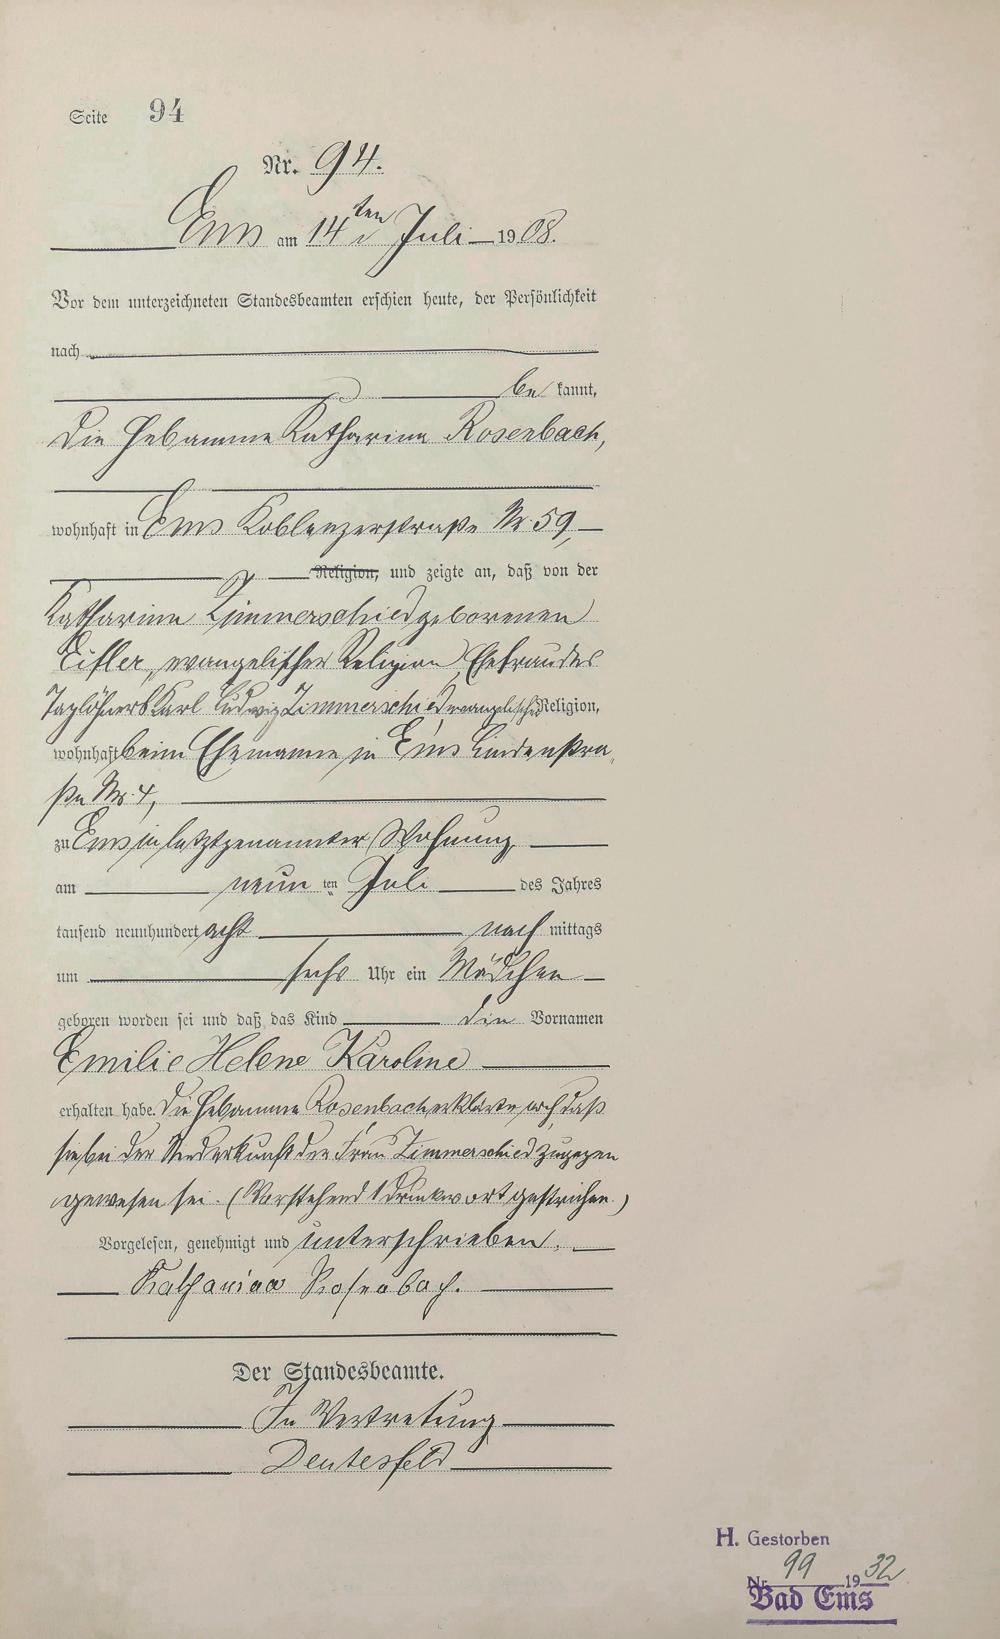 Seite 94
Nr. 94.
Ems am 14ten Juli 1908.
Vor dem unterzeichneten Standesbeamten erschien heute, der Persönlichkeit
nach
be kannt,
die Hebamme Katharina Rosenbach,
wohnhaft in Ems Koblenzerstraße Nr. 59,
Religion, und zeigte an, daß von der
Katharina Zimmerschied geborenen
Eifler, evangelischer Religion, Ehefrau des
Taglöhners Karl Ludwig Zimmerschied evangelischer Religion,
wohnhaft beim Ehemanne in Ems Lindenstra
ße Nr. 4,
zu Ems in letztgenannter Wohnung
am neun ten Juli des Jahres
tausend neunhundert acht nach mittags
um sechs Uhr ein Mädchen
geboren worden sei und daß das Kind die Vornamen
Emilie Helene Karoline
erhalten habe. Die Hebamme Rosenbach erklärte noch daß
sie bei der Niederkunft der Frau Zimmerschied zugegen
gewesen sei. (Vorstehend 1 Druckwort gestrichen.)
Vorgelesen, genehmigt und unterschrieben.
Katharina Rosenbach.
Der Standesbeamte.
In Vertretung
Deutesfeld
H. Gestorben
Nr. 99 1932
Bad Ems